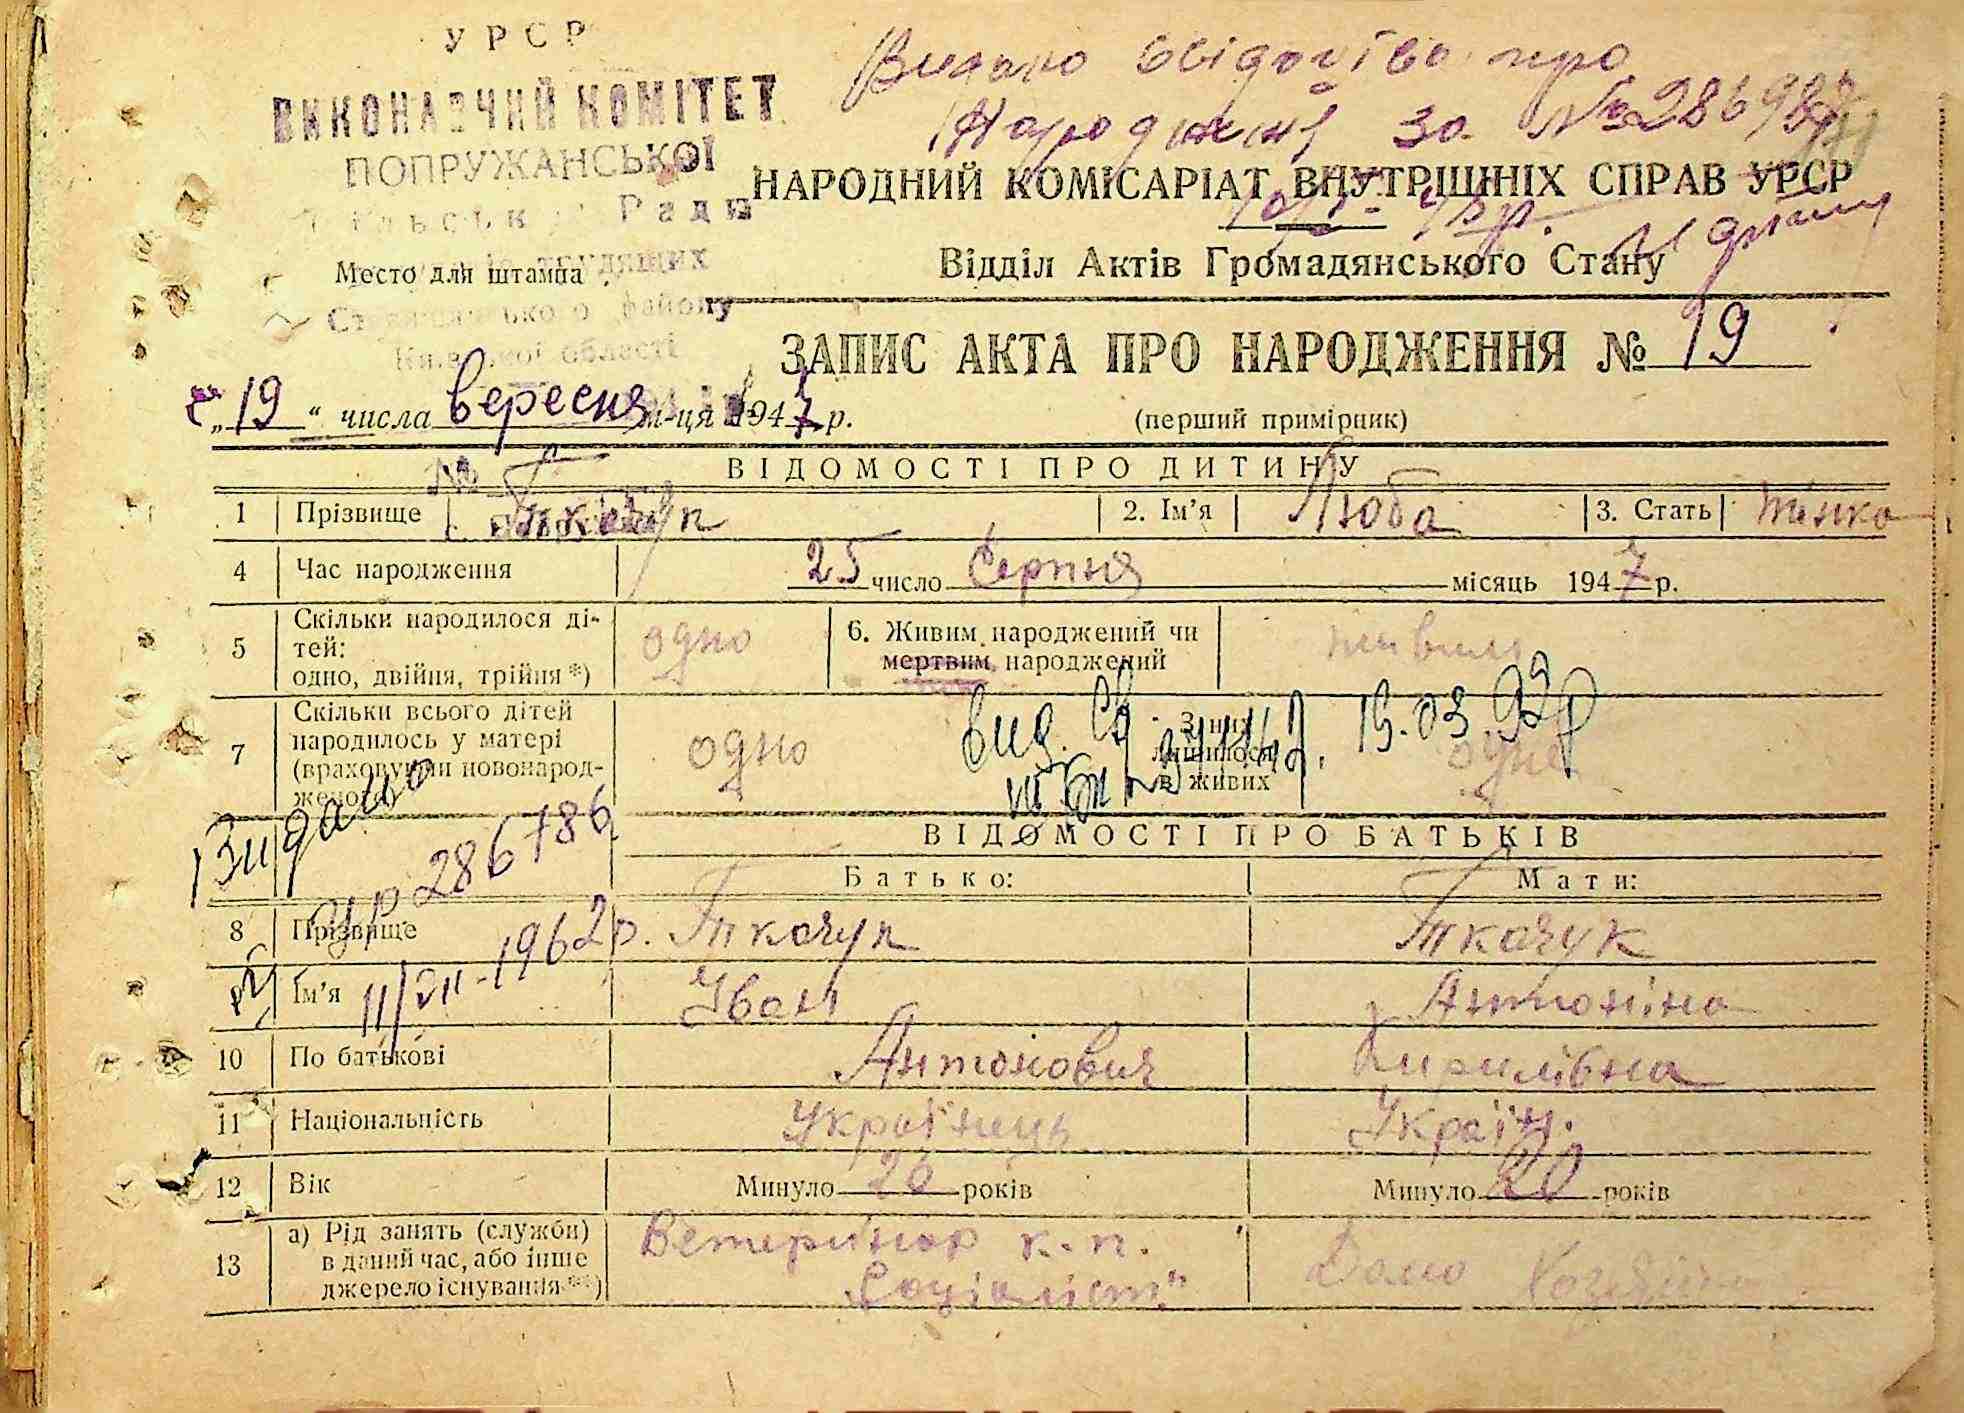 УРСР
ВИКОНАВЧИЙ КОМІТЕТ
ПОПРУЖАНСЬКОЇ
Ради
трудящих
району
Київської області
Видано свідоцтво про
Народження за №
НАРОДНИЙ КОМІСАРІАТ ВНУТРІШНІХ СПРАВ УРСР
Место для штампа
Відділ Актів Громадянського Стану
ЗАПИС АКТА ПРО НАРОДЖЕННЯ № 19
„19“ числа вересня м-ця 1947 р.
(перший примірник)
№
ВІДОМОСТІ ПРО ДИТИНУ
1 Прізвище Ткачук 2. Ім'я Люба 3. Стать жінка
4 Час народження 25 число Серпня місяць 1947 р.
5 Скільки народилося дітей: одно, двійня, трійня *) одно 6. Живим народжений чи мертвим народжений живим
7 Скільки всього дітей народилось у матері (враховуючи новонародженого) одно З них лишилося в живих одне
вид. 19.03 92р
Видано
УР 286786
11/VII-1962р.
ВІДОМОСТІ ПРО БАТЬКІВ
Батько: Мати:
8 Прізвище Ткачук Ткачук
9 Ім'я Іван Антоніна
10 По батькові Антонович Кирилівна
11 Національність Українець Україн.
12 Вік Минуло 26 років Минуло 20 років
13 а) Рід занять (служби) в даний час, або інше джерело існування **) Ветеринар к-п. „Соціаліст" Домо Хозяйка